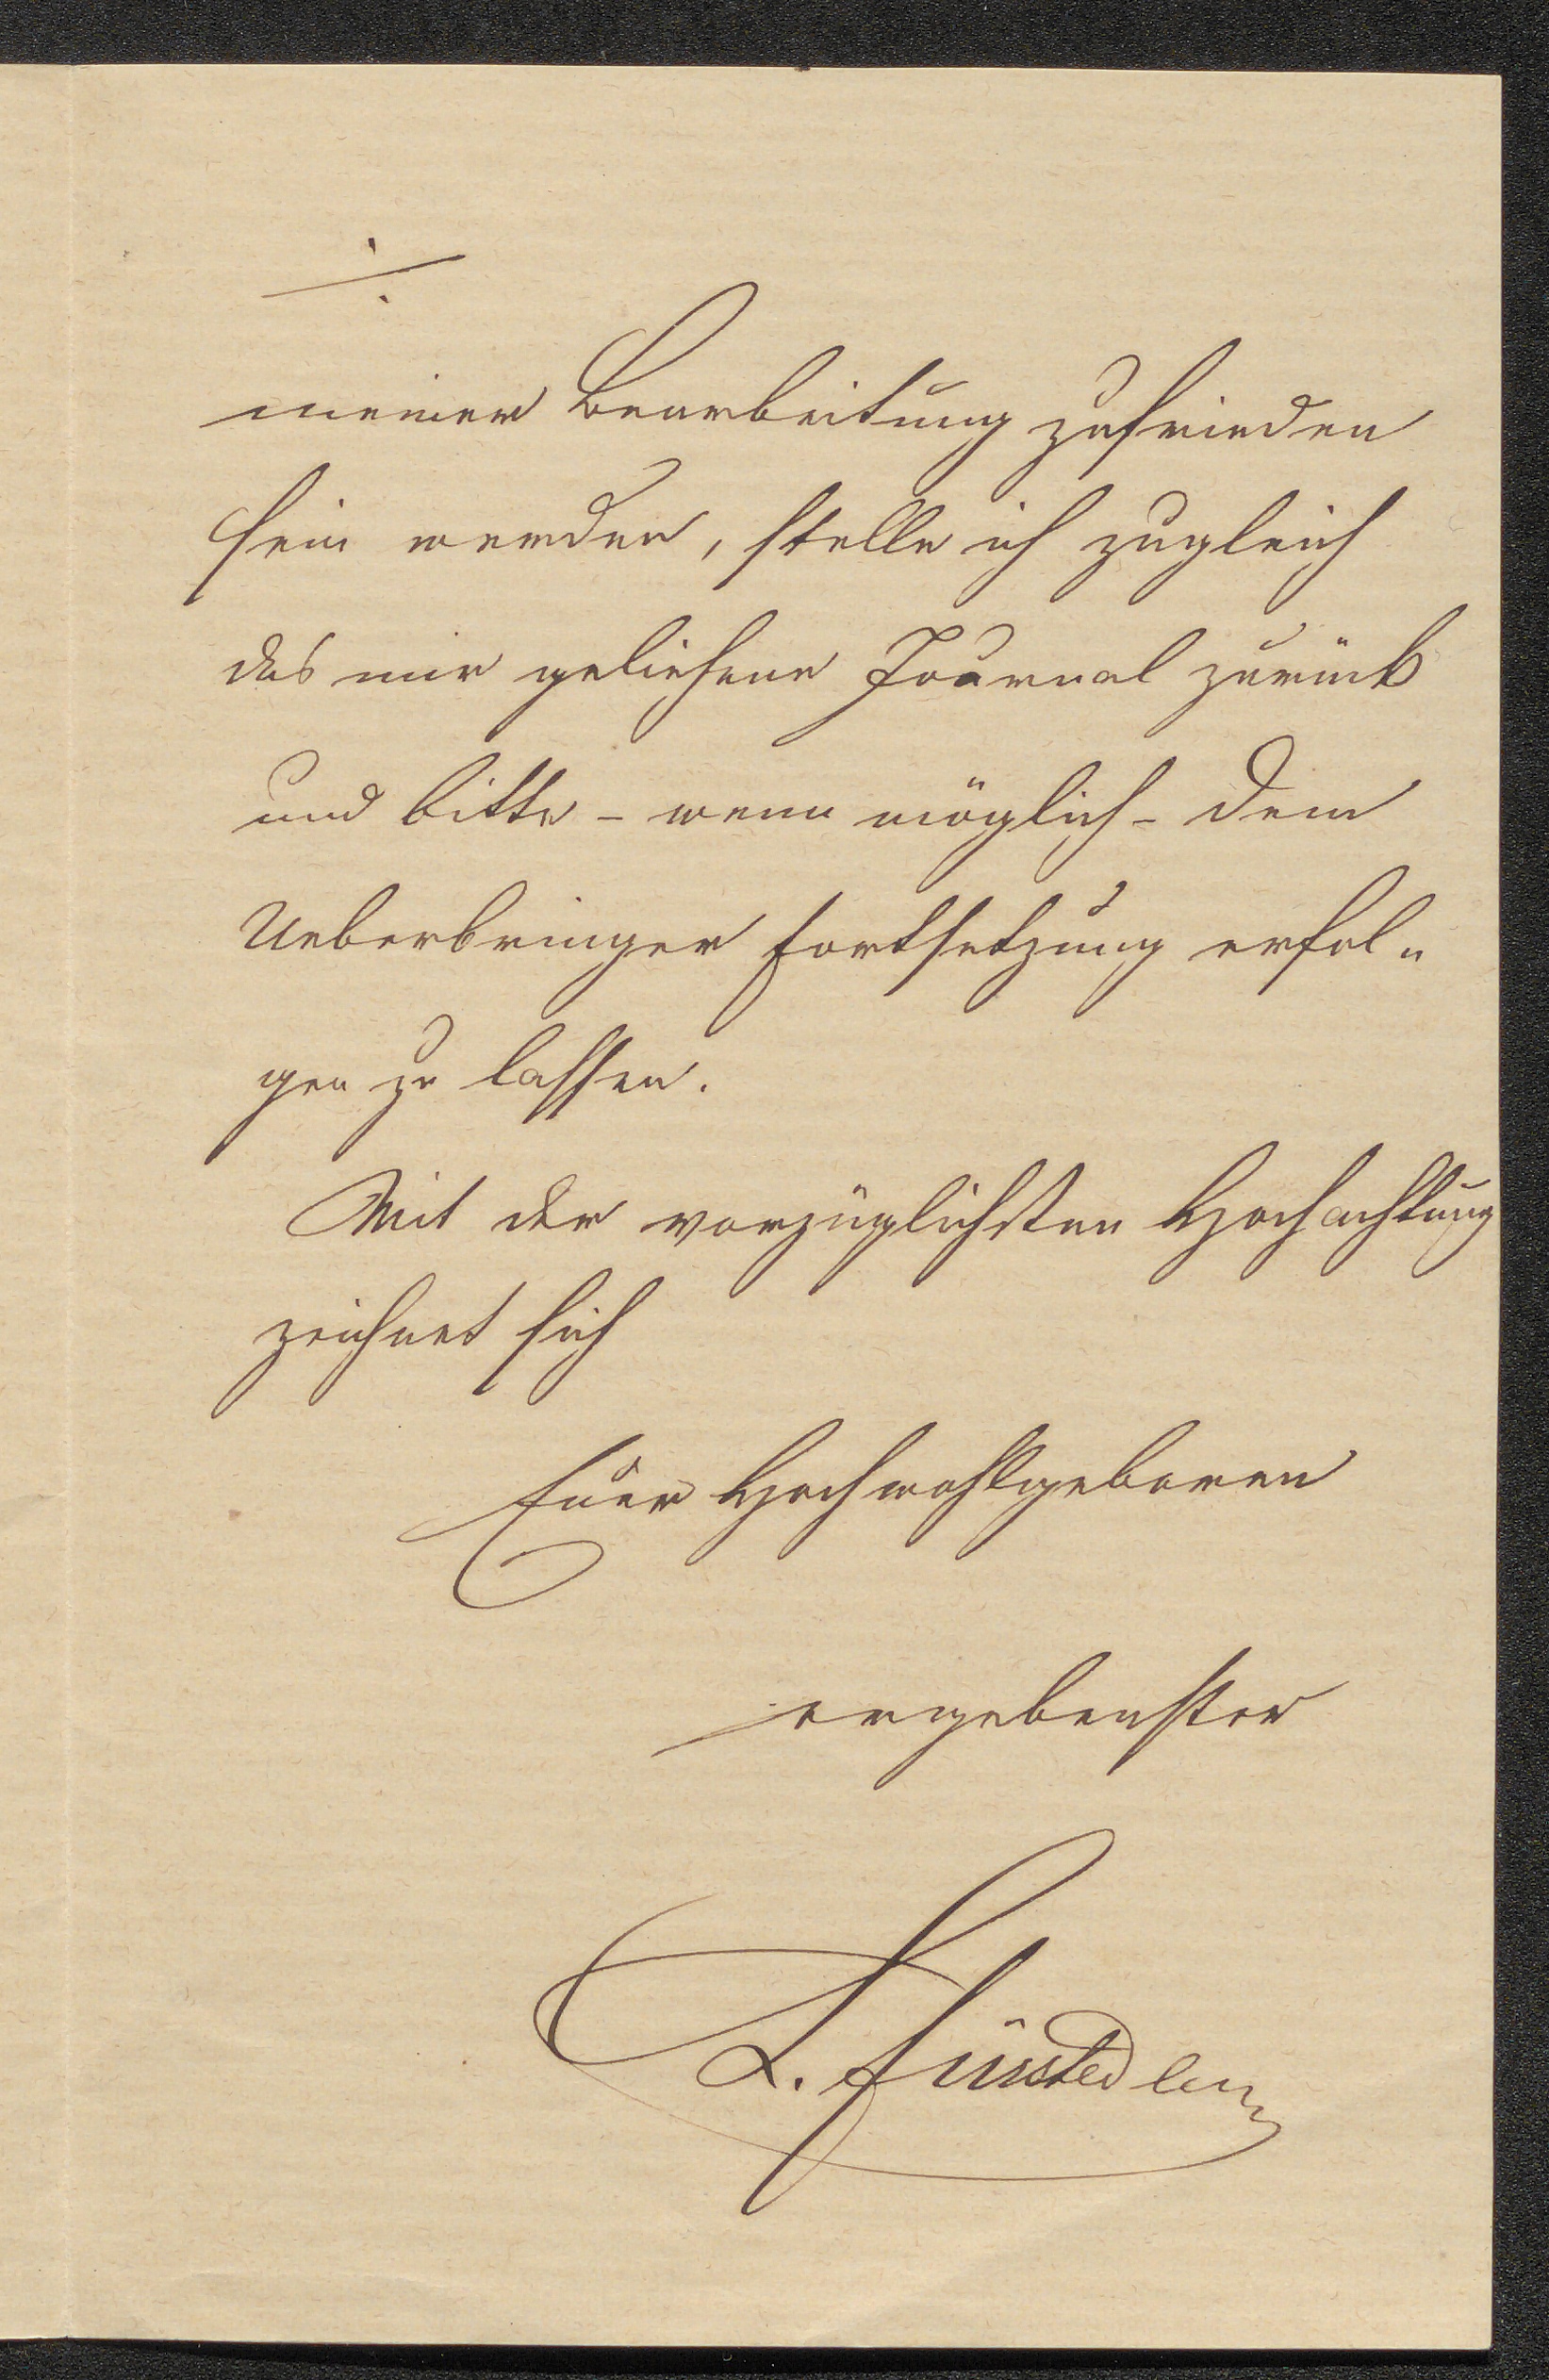 ./.
meiner Bearbeitung zufrieden
sein werden, stelle ich zugleich
das mir geliehene Journal zurück
und bitte – wenn möglich – dem
Ueberbringer Fortsetzung erfol-
gen zu lassen.
Mit der vorzüglichsten Hochachtung
zeichnet sich
Euer Hochwohlgeboren
ergebenster
L.